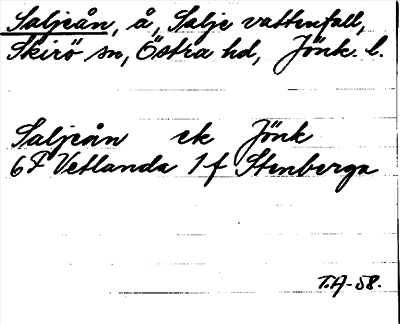 Saljeån, å, Salje vattenfall,
Skirö sn, Östra hd, Jönk. l.
Saljeån ek Jönk
6F Vetlanda 1f Stenberga
T.A-58.